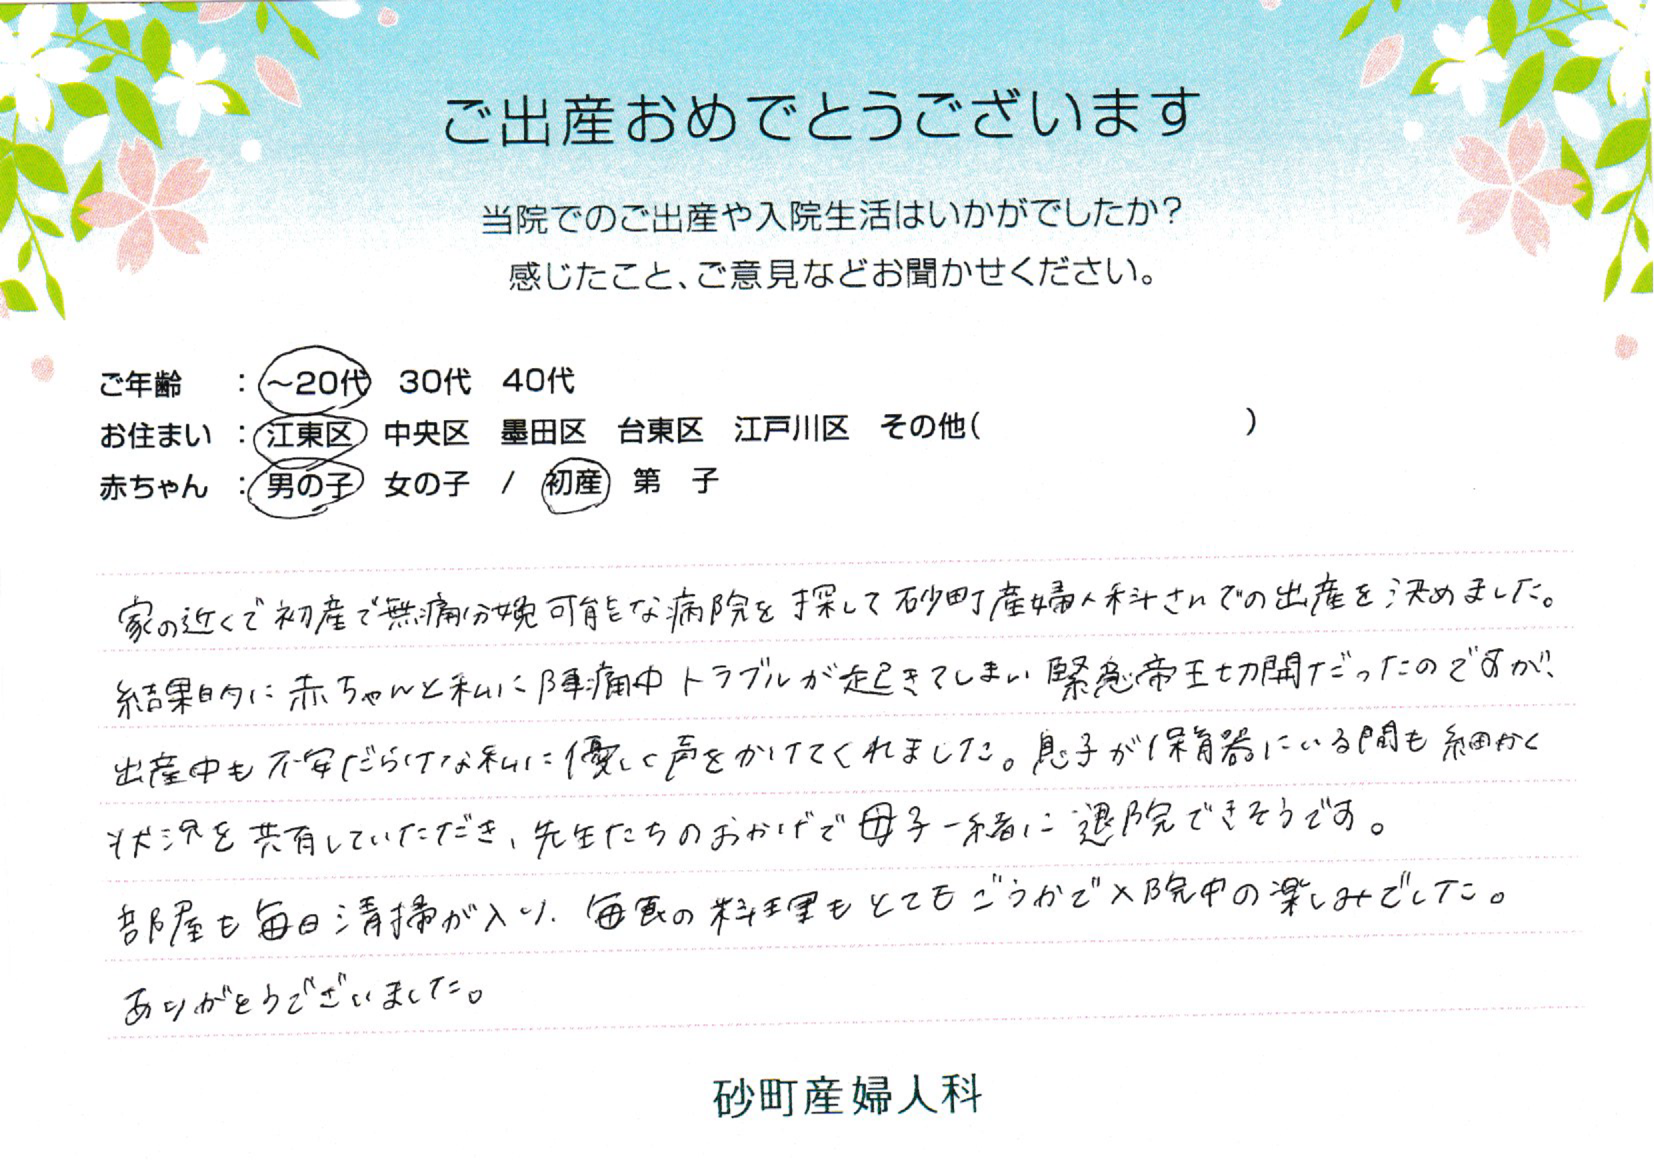 ご出産おめでとうございます
当院でのご出産や入院生活はいかがでしたか?
感じたこと、ご意見などお聞かせください。
ご年齢 : ~20代 30代 40代
お住まい : 江東区 中央区 墨田区 台東区 江戸川区 その他( )
赤ちゃん : 男の子 女の子 / 初産 第 子
家の近くで初産で無痛分娩可能な病院を探して砂町産婦人科さんでの出産を決めました。
結果的に赤ちゃんと私に陣痛中トラブルが起きてしまい緊急帝王切開だったのですが、
出産中も不安だらけな私に優しく声をかけてくれました。息子が保育器にいる間も細かく
状況を共有していただき、先生たちのおかげで母子一緒に退院できそうです。
部屋も毎日清掃が入り、毎食の料理もとてもごうかで入院中の楽しみでした。
ありがとうございました。
砂町産婦人科